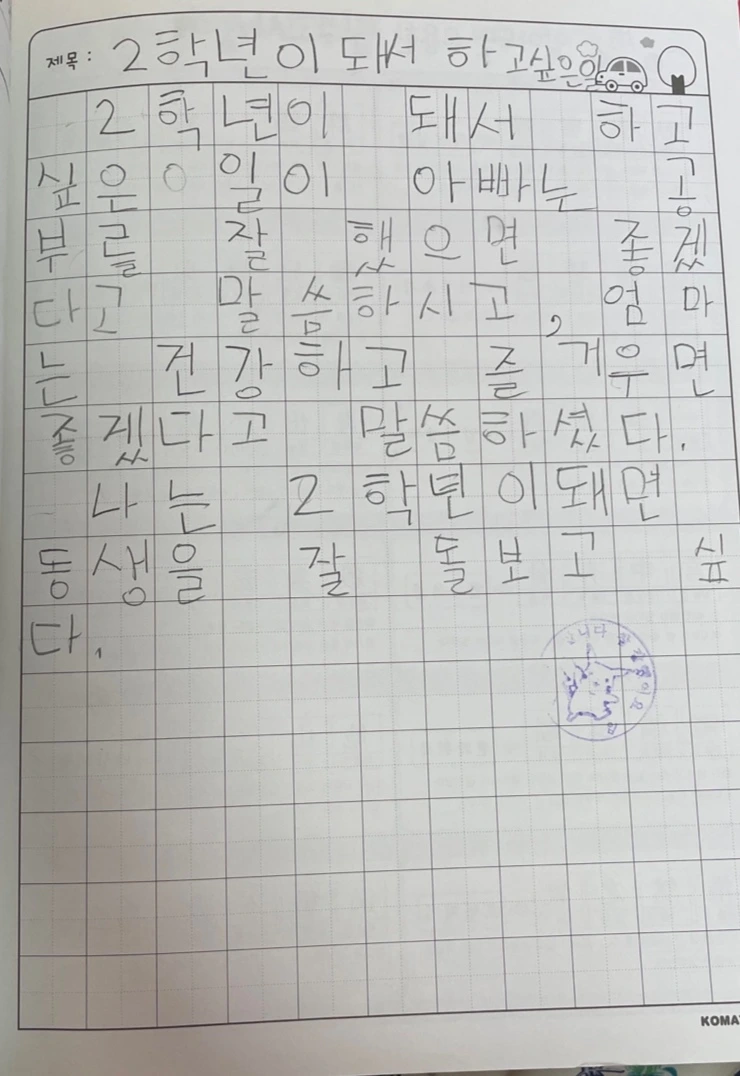 제목: 2학년이 돼서 하고싶은일
2학년이 돼서 하고
싶은 일이 아빠는 공
부를 잘 했으면 좋겠
다고 말씀하시고, 엄마
는 건강하고 즐거우면
좋겠다고 말씀하셨다.
나는 2학년이돼면
동생을 잘 돌보고 싶
다.
KOMA